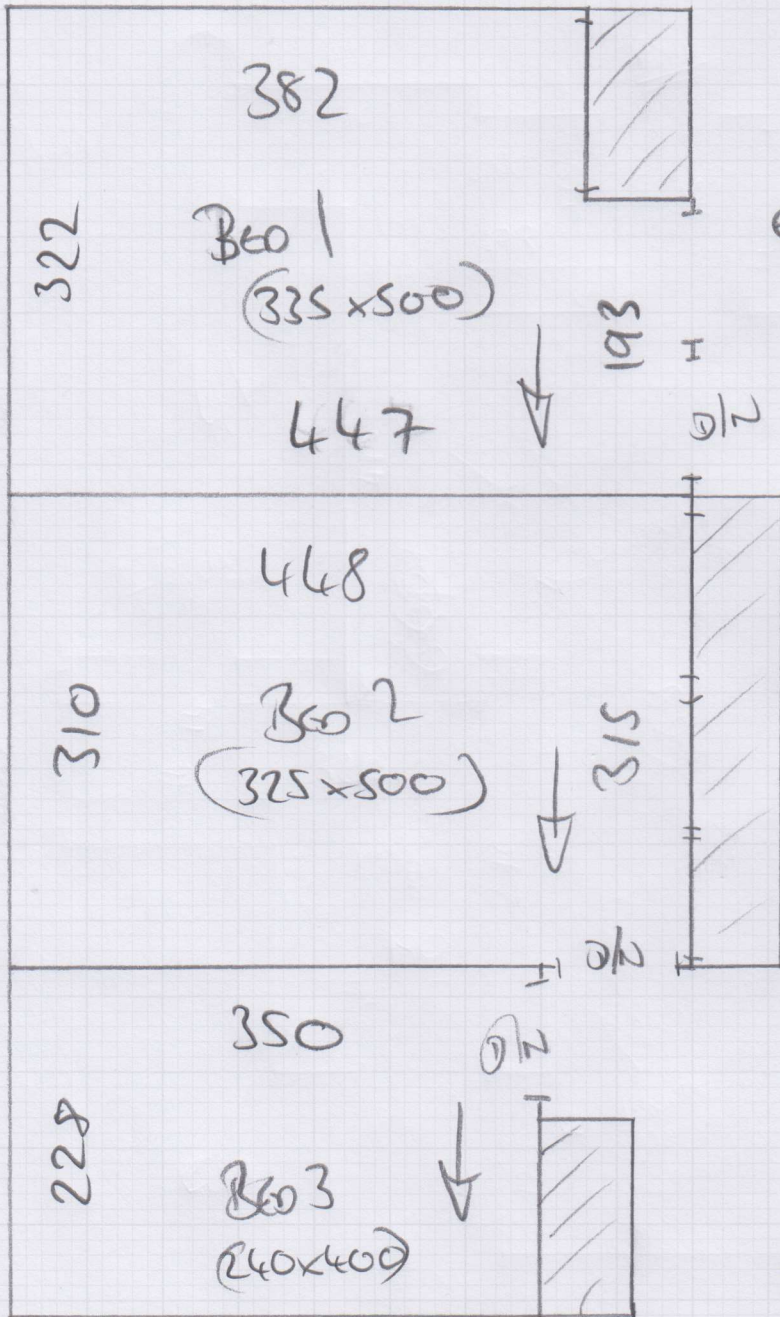 382
322
BED 1
(335 x 500)
193
447
D/N
448
310
BED 2
(325 x 500)
315
D/N
350
D/N
228
BED 3
(240 x 400)